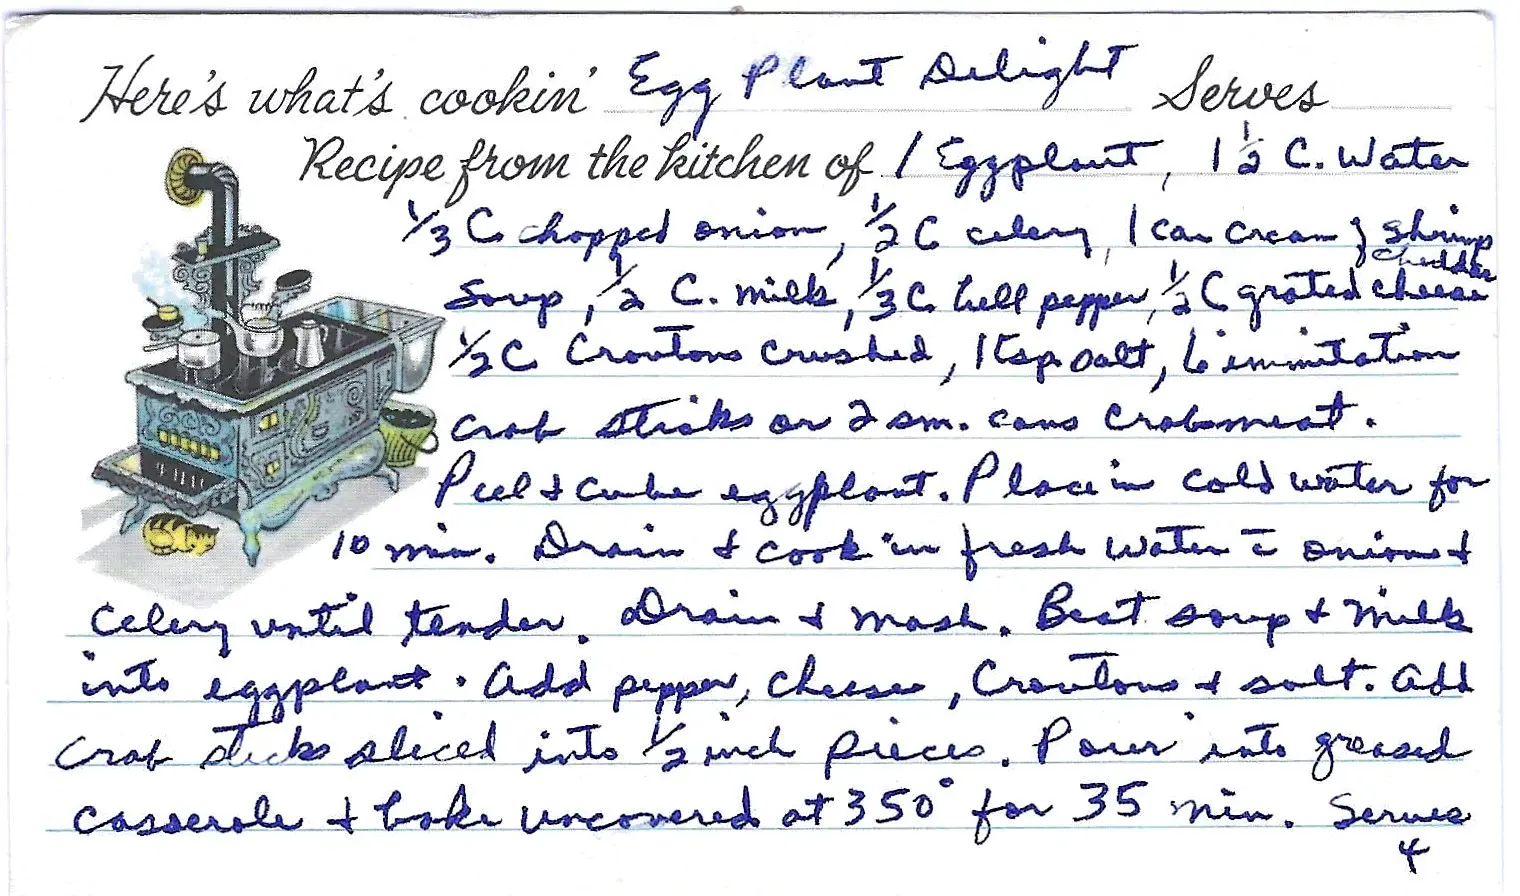 Here's what's cookin' Egg Plant Delight Serves
Recipe from the kitchen of 1 Eggplant, 1 1/2 C. Water
1/3 C chopped onion, 1/2 C celery, 1 can cream of shrimp
soup, 1/2 C. milk, 1/3 C bell pepper, 1/2 C grated cheddar cheese
1/2 C Croutons crushed, 1 tsp salt, 6 immitation
crab sticks or 2 sm. cans crabmeat.
Peel & cube eggplant. Place in cold water for
10 min. Drain & cook in fresh water c̄ onion &
celery until tender. Drain & mash. Beat soup & milk
into eggplant. Add pepper, cheese, Croutons & salt. Add
crab sticks sliced into 1/2 inch pieces. Pour into greased
casserole & bake uncovered at 350° for 35 min. Serves
4